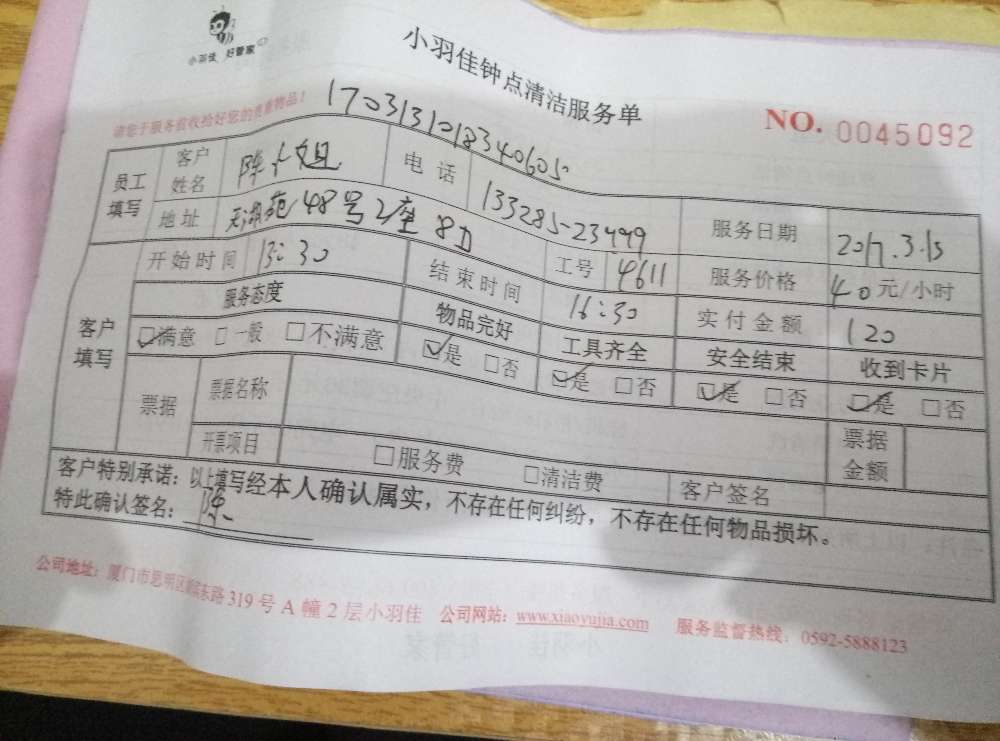 小羽佳 好管家
小羽佳钟点清洁服务单
NO. 0045092
请您于服务前收拾好您的贵重物品!
17031310183406050
员工填写 客户姓名 陈小姐 电话 133285-23499 服务日期 2017.3.15
地址 天湖苑48号2座8D 工号 4611 服务价格 40元/小时
客户填写 开始时间 13:30 结束时间 16:30 实付金额 120
服务态度 物品完好 工具齐全 安全结束 收到卡片
☑满意 □一般 □不满意 ☑是 □否 ☑是 □否 ☑是 □否 ☑是 □否
票据 票据名称 票据金额
开票项目 □服务费 □清洁费 客户签名
客户特别承诺:以上填写经本人确认属实,不存在任何纠纷,不存在任何物品损坏。
特此确认签名: 陈
公司地址:厦门市思明区湖滨东路319号A幢2层小羽佳 公司网站:www.xiaoyujia.com 服务监督热线:0592-5888123